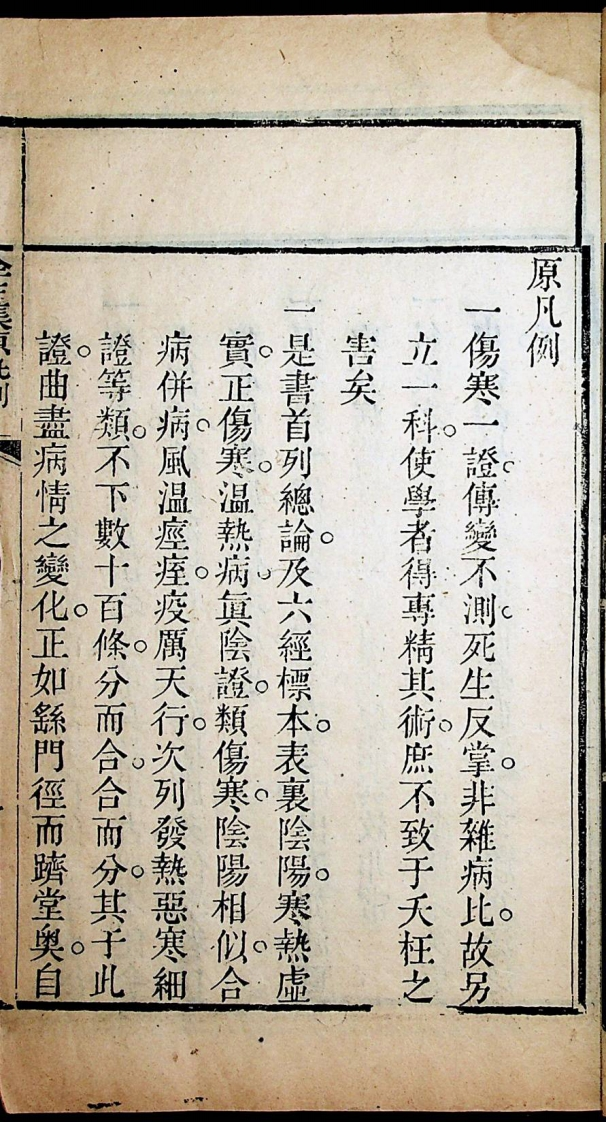 原凡例
一傷寒一證傳變不測死生反掌非雜病比故另
立一科使學者得專精其術庶不致于夭枉之
害矣
一是書首列總論及六經標本表裏陰陽寒熱虛
實正傷寒溫熱病眞陰證類傷寒陰陽相似合
病併病風溫痙痓疫厲天行次列發熱惡寒細
證等類不下數十百條分而合合而分其于此
證曲盡病情之變化正如繇門徑而躋堂奧自